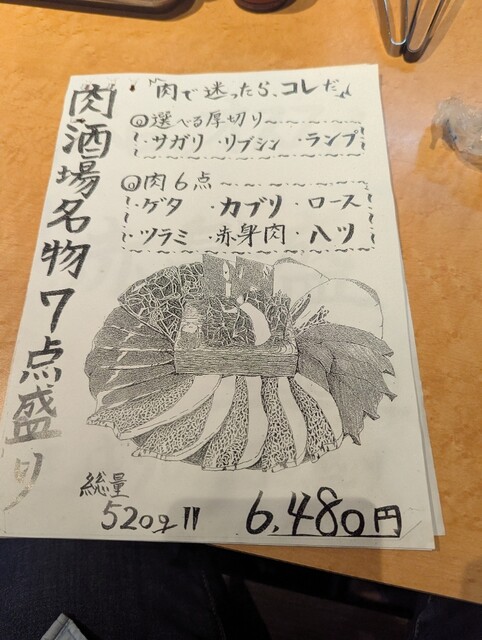 肉酒場名物7点盛り
"肉で迷ったら、コレだ〟
◎選べる厚切り
・サガリ ・リブシン ・ランプ
◎肉6点
・ゲタ ・カブリ ・ロース
・ツラミ ・赤身肉 ・ハツ
総量
520g!!
6,480円